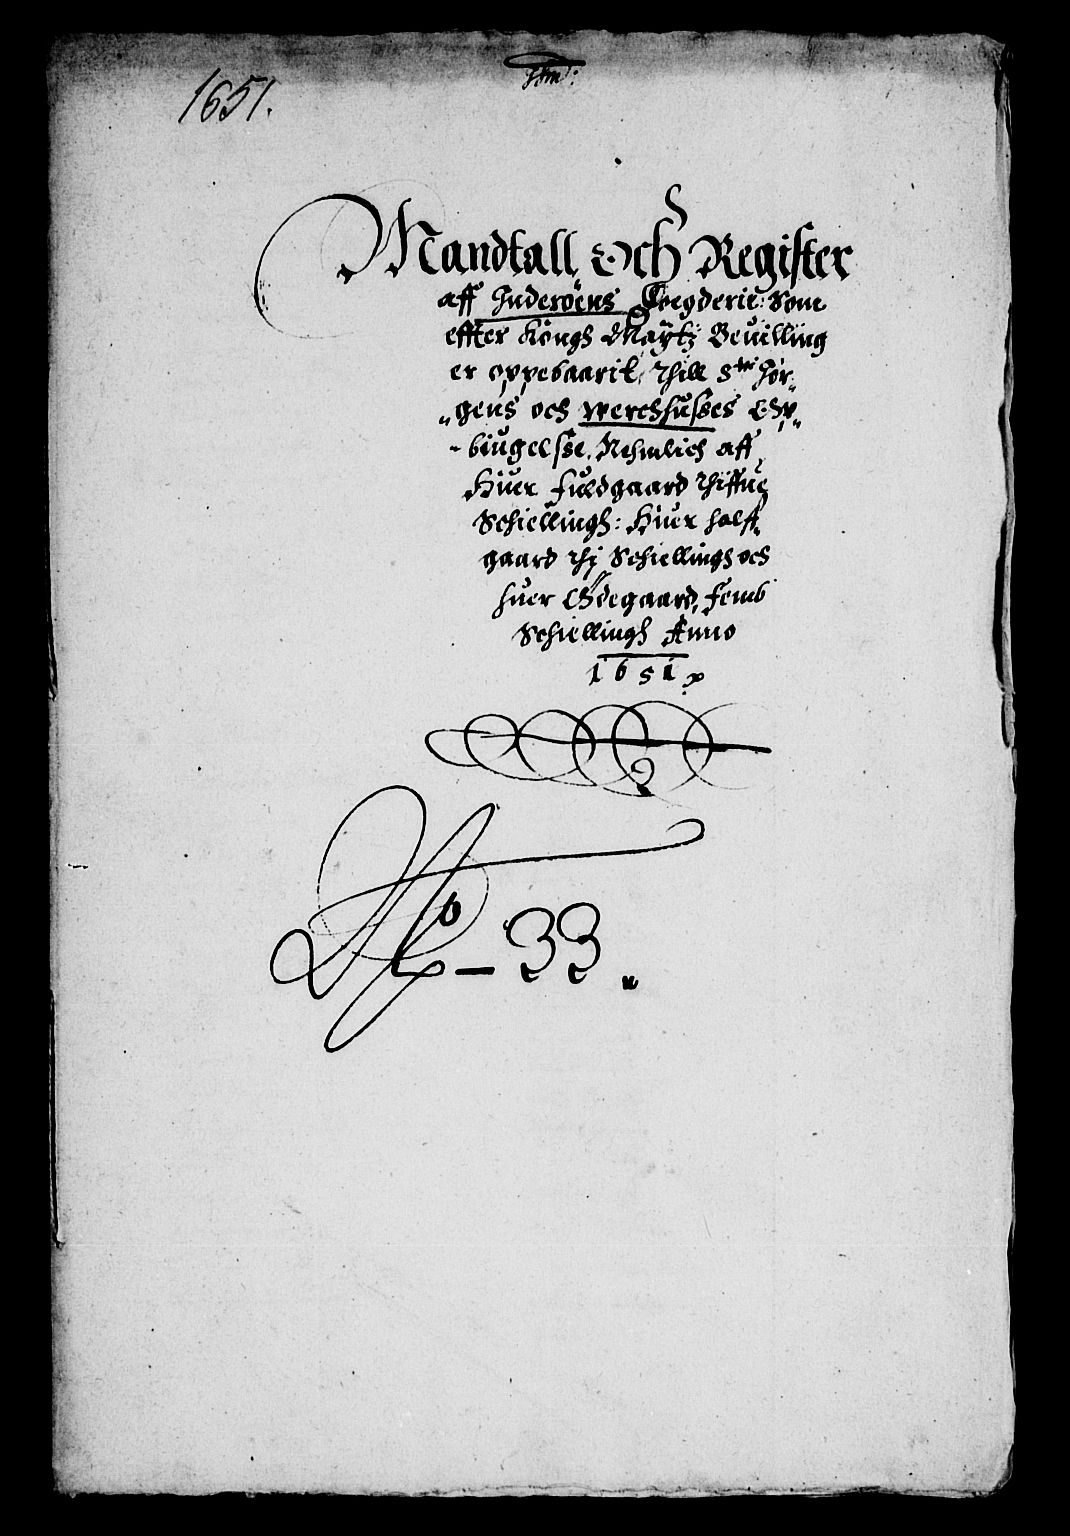 1651.
Mandtall Och Register
aff Inderöens Foegderie: Som
effter Kongs Maÿtz Beuilling
er oppebaarit, Thill Stni Jör„
„gens och Werchhußes Op„
„biugelsse. Nehmlich aff
Huer Fuldgaard Thiffue
Schiellingh: Huer halff„
gaard Thj Schiellingh och
huer Ødegaard, Femb
Schiellingh Anno
1651
No - 33„